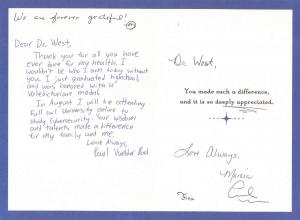 We are forever grateful!
Dear Dr. West,
Thank you for all you have
ever done for my health. I
wouldn't be who I am today without
you. I just graduated highschool,
and was honored with a
Valedictorian medal.
In August I will be attending
Full Sail University online to
study cybersecurity. Your wisdom
and talents made a difference
for my family and me.
Love Always,
Paul
Dr. West,
You made such a difference,
and it is so deeply appreciated.
Love Always,
Marcia